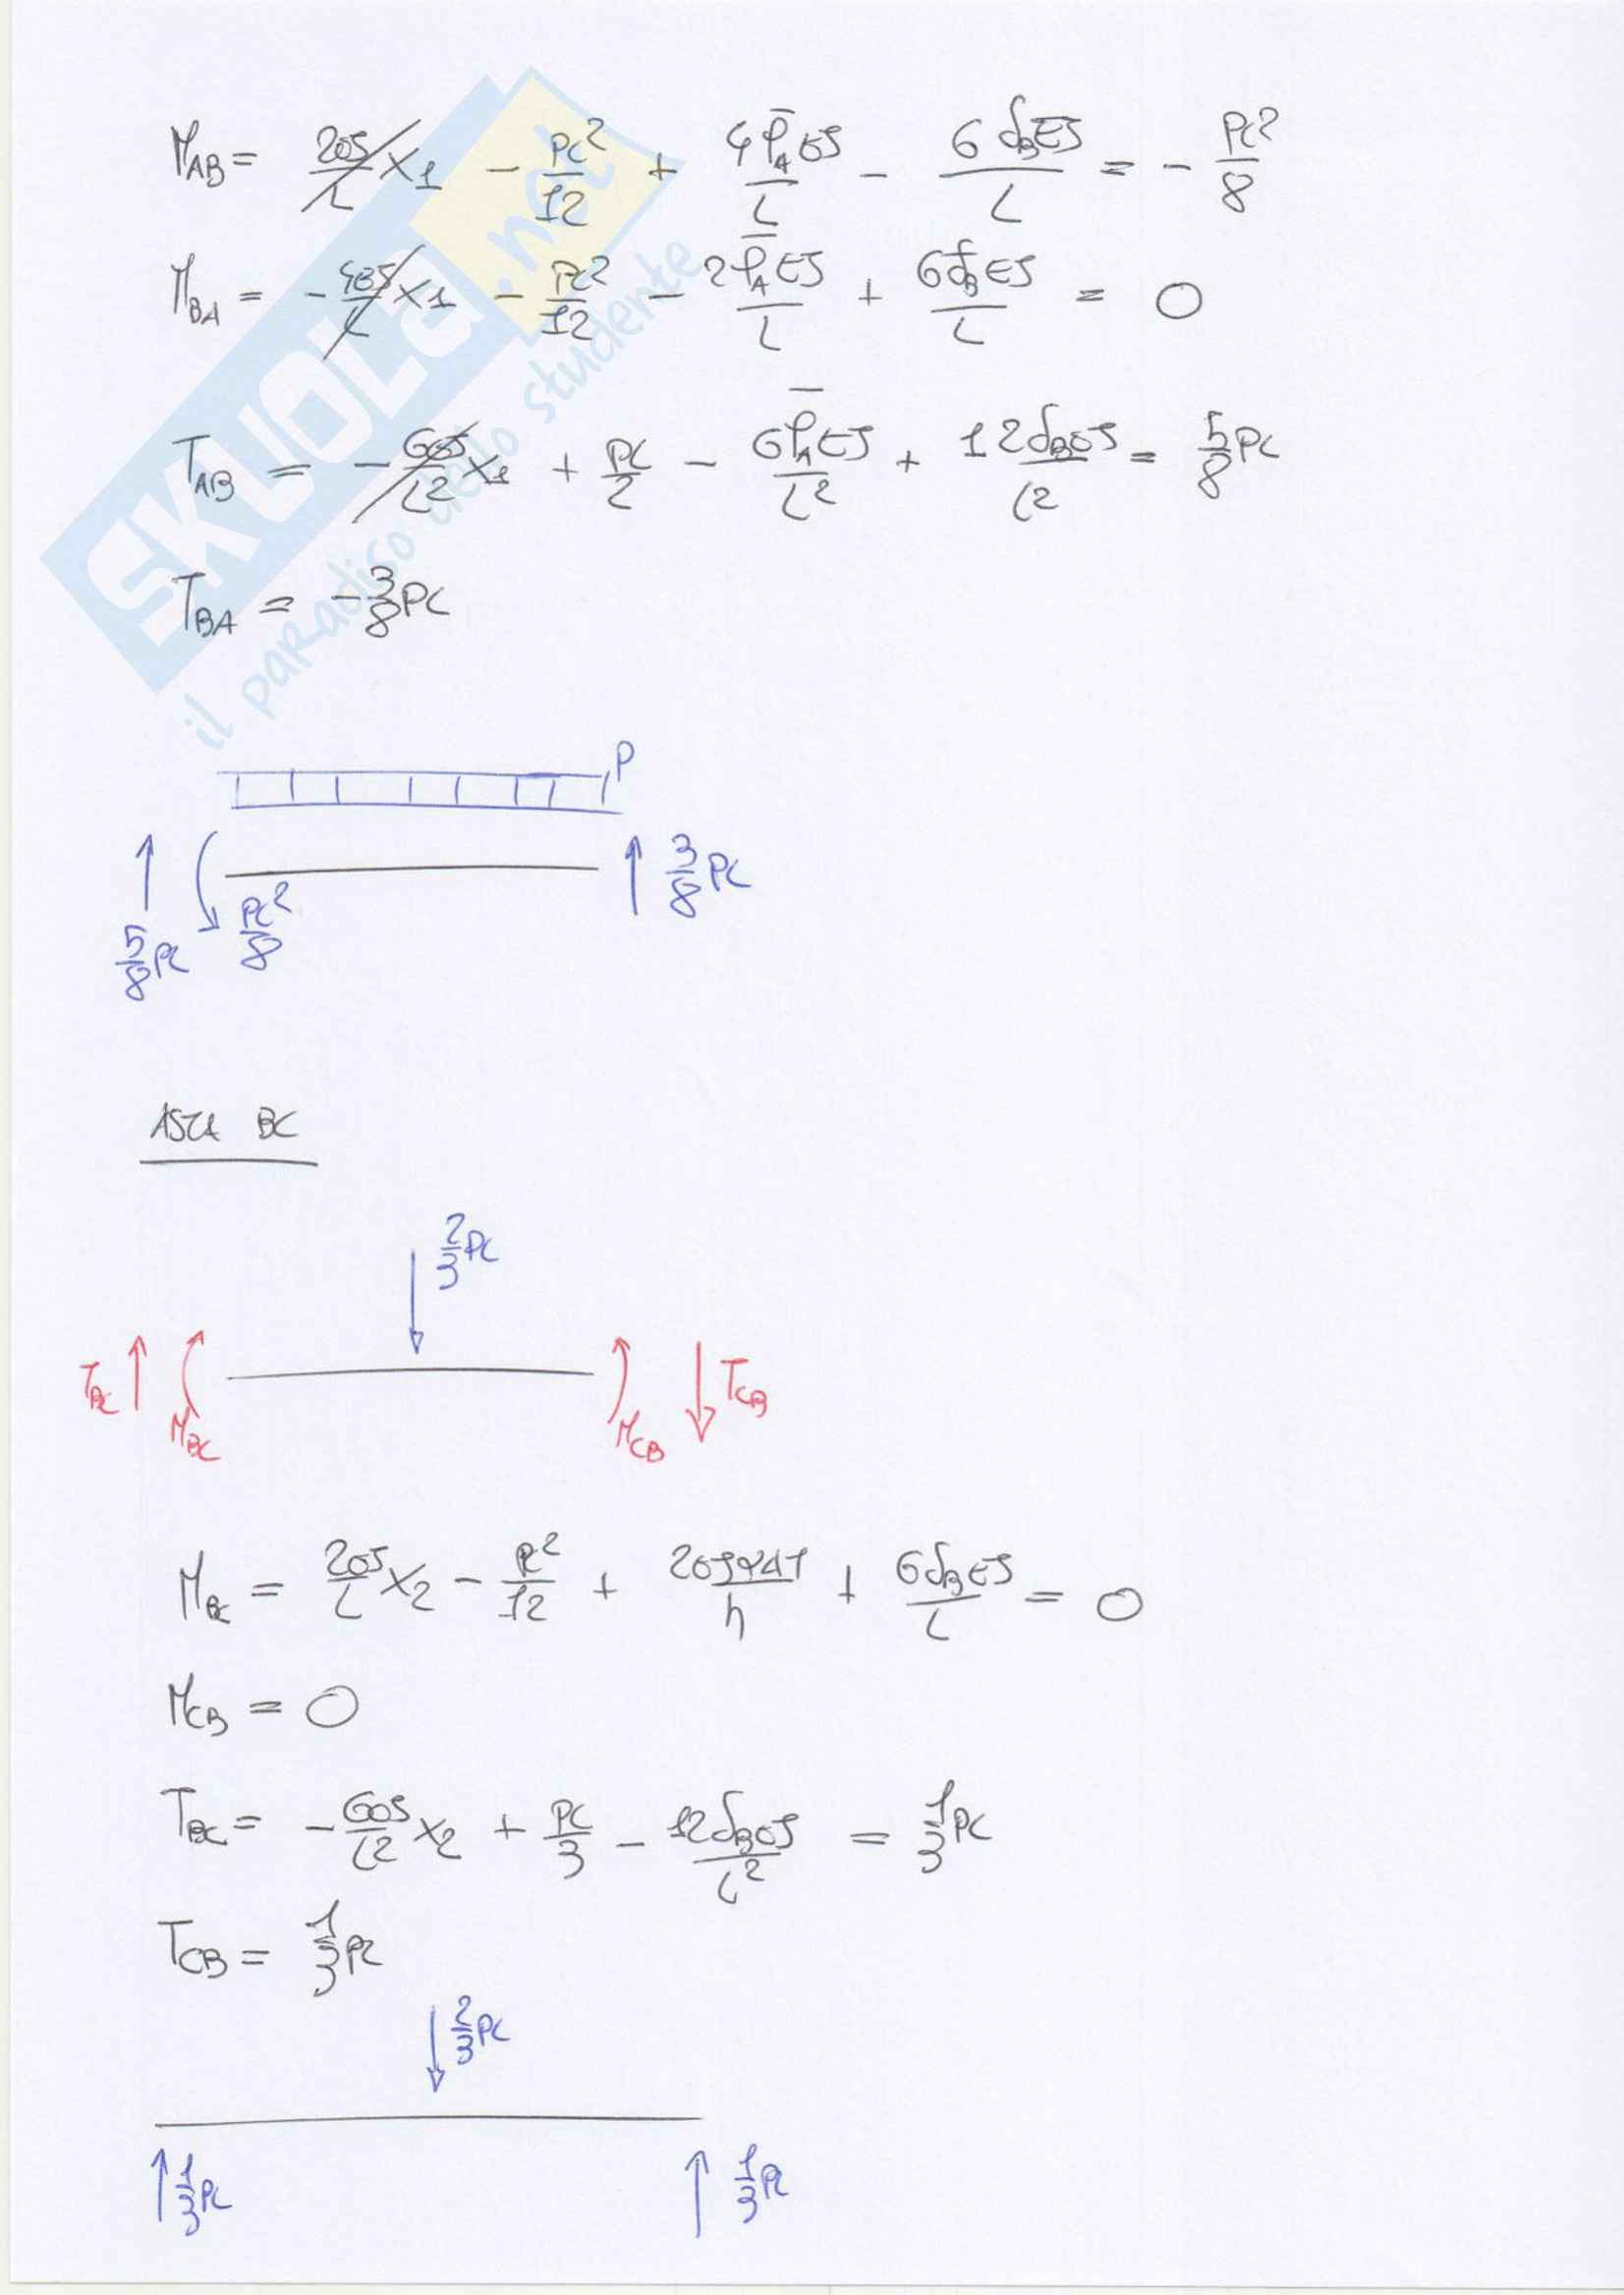 M_AB = 2EJ/L X1 - PL²/12 + 4φ̄_A EJ/L - 6δ_B EJ/L = - PL²/8
M_BA = - 4EJ/L X1 - PL²/12 - 2φ̄_A EJ/L + 6δ_B EJ/L = 0
T_AB = - 6EJ/L² X1 + PL/2 - 6φ̄_A EJ/L² + 12δ_B EJ/L² = 5/8 PL
T_BA = - 3/8 PL
SKUOLA.net
il paradiso dello studente
P
5/8 PL
PL²/8
3/8 PL
ASTA BC
2/3 PL
T_BC
M_BC
M_CB
T_CB
M_BC = 2EJ/L X2 - PL²/12 + 2EJαΔT/h + 6δ_B EJ/L = 0
M_CB = 0
T_BC = - 6EJ/L² X2 + PL/3 - 12δ_B EJ/L² = 1/3 PL
T_CB = 1/3 PL
2/3 PL
1/3 PL
1/3 PL